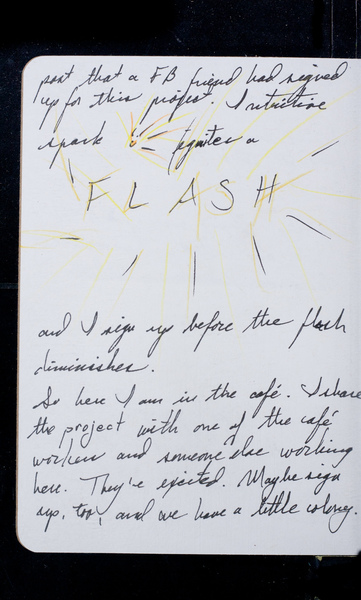 post that a FB friend had signed
up for this project. Intuitive
spark ignites a
FLASH
and I sign up before the flash
diminishes.
So here I am in the café. I share
the project with one of the café
workers and someone else working
here. They're excited. Maybe sign
up, too, and we have a little colony.